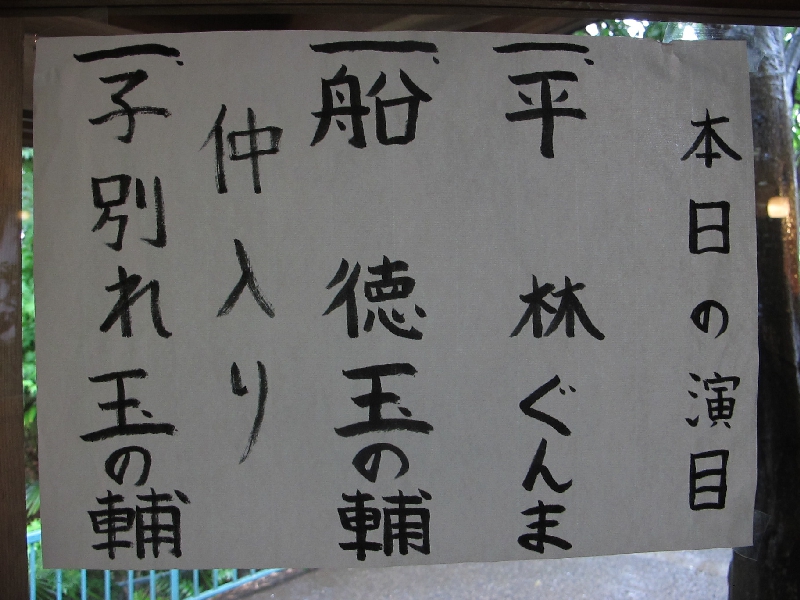 本日の演目
一、平林 ぐんま
一、船徳 玉の輔
仲入り
一、子別れ 玉の輔